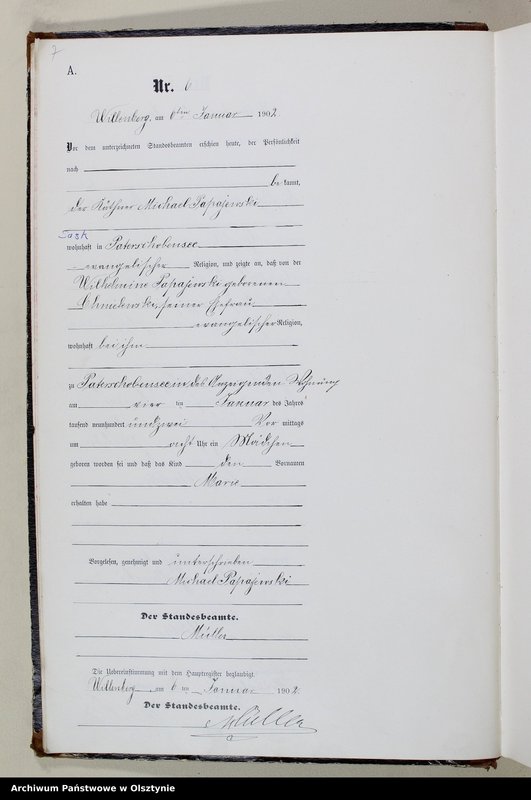 7
A.
Nr. 6
Willenberg, am 6ten Januar 1902
Vor dem unterzeichneten Standesbeamten erschien heute, der Persönlichkeit
nach
be kannt,
der Käthner Michael Papajewski
wohnhaft in Paterschobensee
evangelischer Religion, und zeigte an, daß von der
Wilhelmine Papajewski geborenen
Chmielewski, seiner Ehefrau
evangelischer Religion,
wohnhaft bei ihm
zu Paterschobensee in des Anzeigenden Wohnung
am vier ten Januar des Jahres
tausend neunhundert und zwei Vor mittags
um acht Uhr ein Mädchen
geboren worden sei und daß das Kind den Vornamen
Marie
erhalten habe
Vorgelesen, genehmigt und unterschrieben
Michael Papajewski
Der Standesbeamte.
Müller
Die Uebereinstimmung mit dem Hauptregister beglaubigt.
Willenberg, am 6 ten Januar 1902.
Der Standesbeamte.
Müller
Archiwum Państwowe w Olsztynie